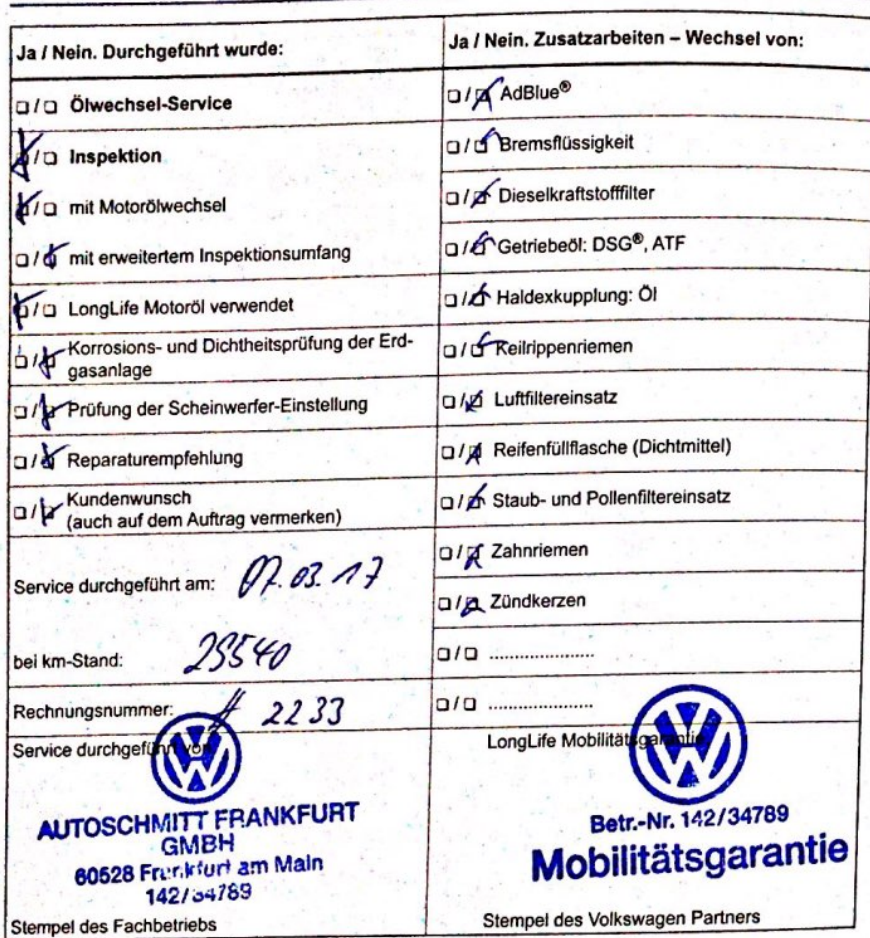 Ja / Nein. Durchgeführt wurde:
☐ / ☐ Ölwechsel-Service
☒ / ☐ Inspektion
☒ / ☐ mit Motorölwechsel
☐ / ☒ mit erweitertem Inspektionsumfang
☒ / ☐ LongLife Motoröl verwendet
☐ / ☒ Korrosions- und Dichtheitsprüfung der Erd-
gasanlage
☐ / ☒ Prüfung der Scheinwerfer-Einstellung
☐ / ☒ Reparaturempfehlung
☐ / ☒ Kundenwunsch
(auch auf dem Auftrag vermerken)
Service durchgeführt am: 07.03.17
bei km-Stand: 25540
Rechnungsnummer: # 2233
Service durchgeführt von
VW
AUTOSCHMITT FRANKFURT
GMBH
60528 Frankfurt am Main
142/34789
Stempel des Fachbetriebs
Ja / Nein. Zusatzarbeiten – Wechsel von:
☐ / ☒ AdBlue®
☐ / ☒ Bremsflüssigkeit
☐ / ☒ Dieselkraftstofffilter
☐ / ☒ Getriebeöl: DSG®, ATF
☐ / ☒ Haldexkupplung: Öl
☐ / ☒ Keilrippenriemen
☐ / ☒ Luftfiltereinsatz
☐ / ☒ Reifenfüllflasche (Dichtmittel)
☐ / ☒ Staub- und Pollenfiltereinsatz
☐ / ☒ Zahnriemen
☐ / ☒ Zündkerzen
☐ / ☐ ......................
☐ / ☐ ......................
LongLife Mobilitätsgarantie
VW
Betr.-Nr. 142/34789
Mobilitätsgarantie
Stempel des Volkswagen Partners